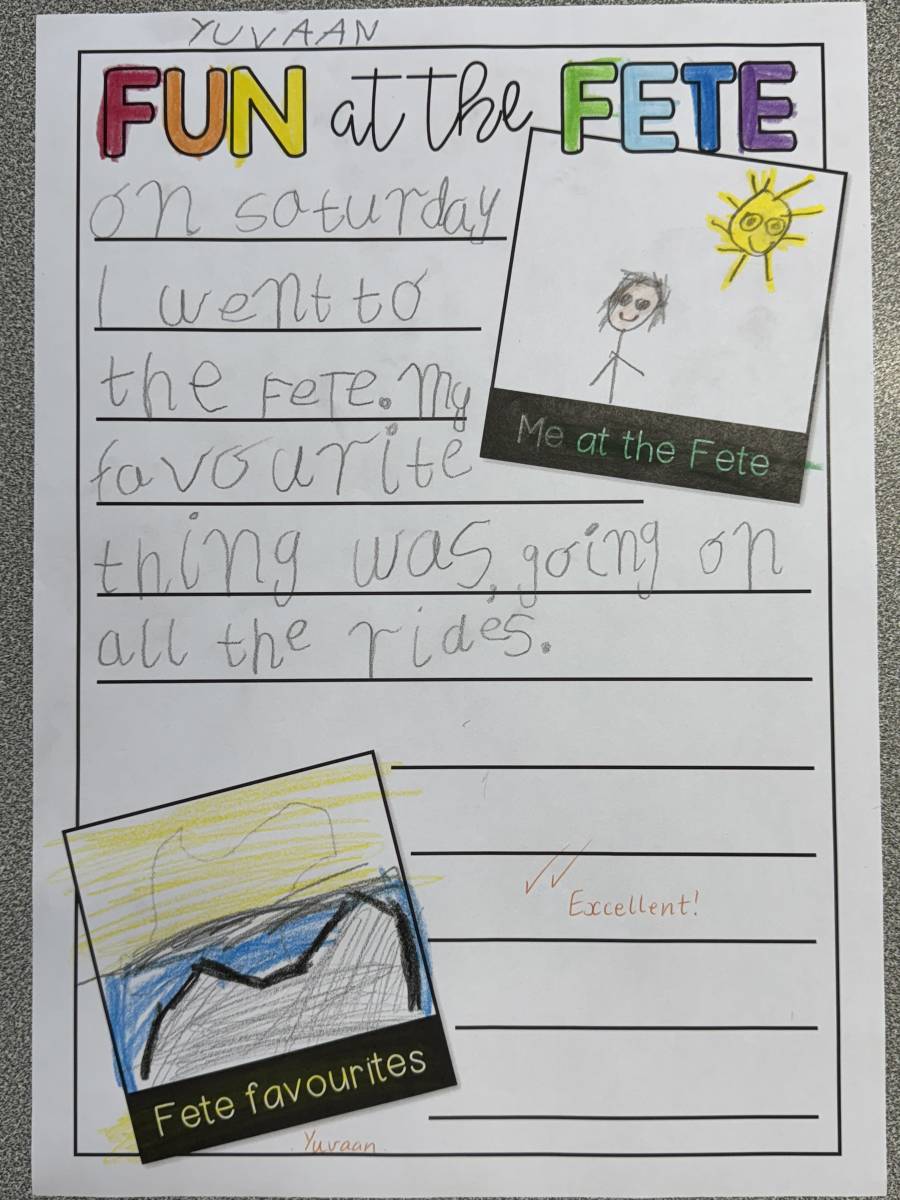 YUVAAN
FUN at the FETE
on saturday
I went to
the FeTe. My
favourite
thing was going on
all the rides.
Me at the Fete
Excellent!
Fete favourites
Yuvaan